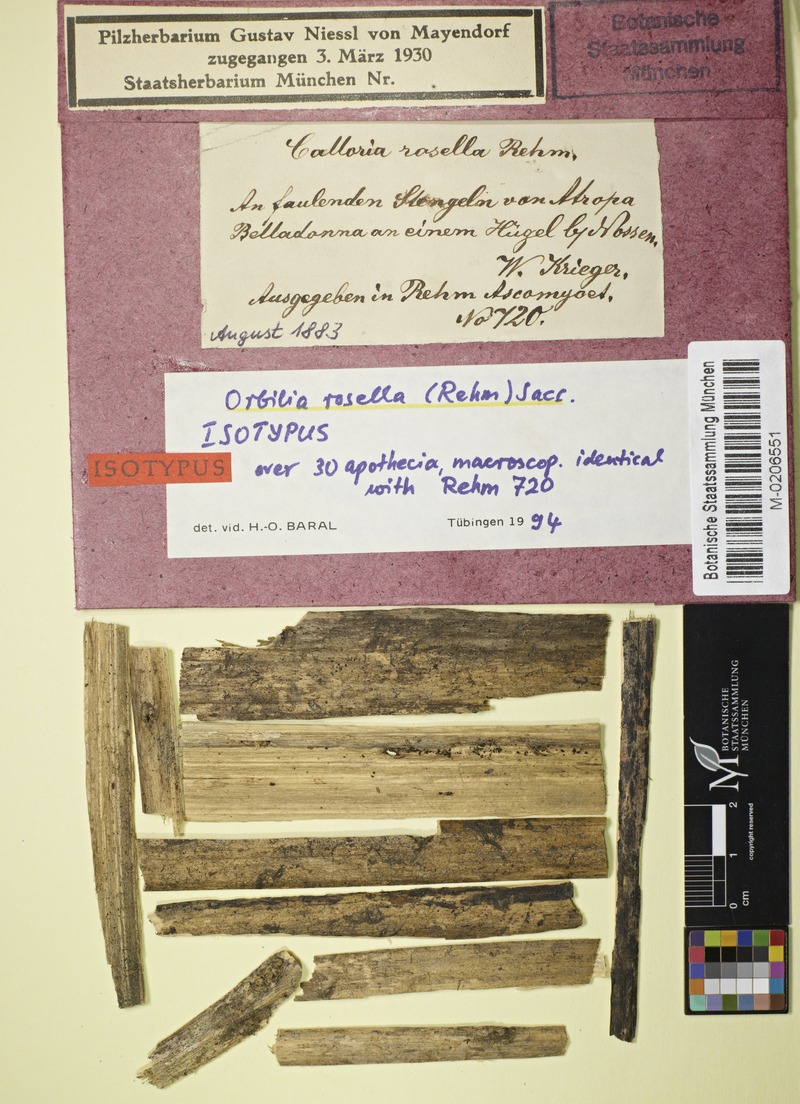 Pilzherbarium Gustav Niessl von Mayendorf
zugegangen 3. März 1930
Staatsherbarium München Nr.
Botanische
Staatssammlung
München
Calloria rosella Rehm.
An faulenden Stengeln von Atropa
Belladonna an einem Hügel by Nossen.
W. Krieger.
Ausgegeben in Rehm Ascomycet.
No 720.
August 1883
Orbilia rosella (Rehm) Sacc.
ISOTYPUS
ISOTYPUS
over 30 apothecia, macroscop. identical
with Rehm 720
det. vid. H.-O. BARAL
Tübingen 1994
Botanische Staatssammlung München
M-0206551
M
BOTANISCHE
STAATSSAMMLUNG
MÜNCHEN
0 1 2
cm
copyright reserved